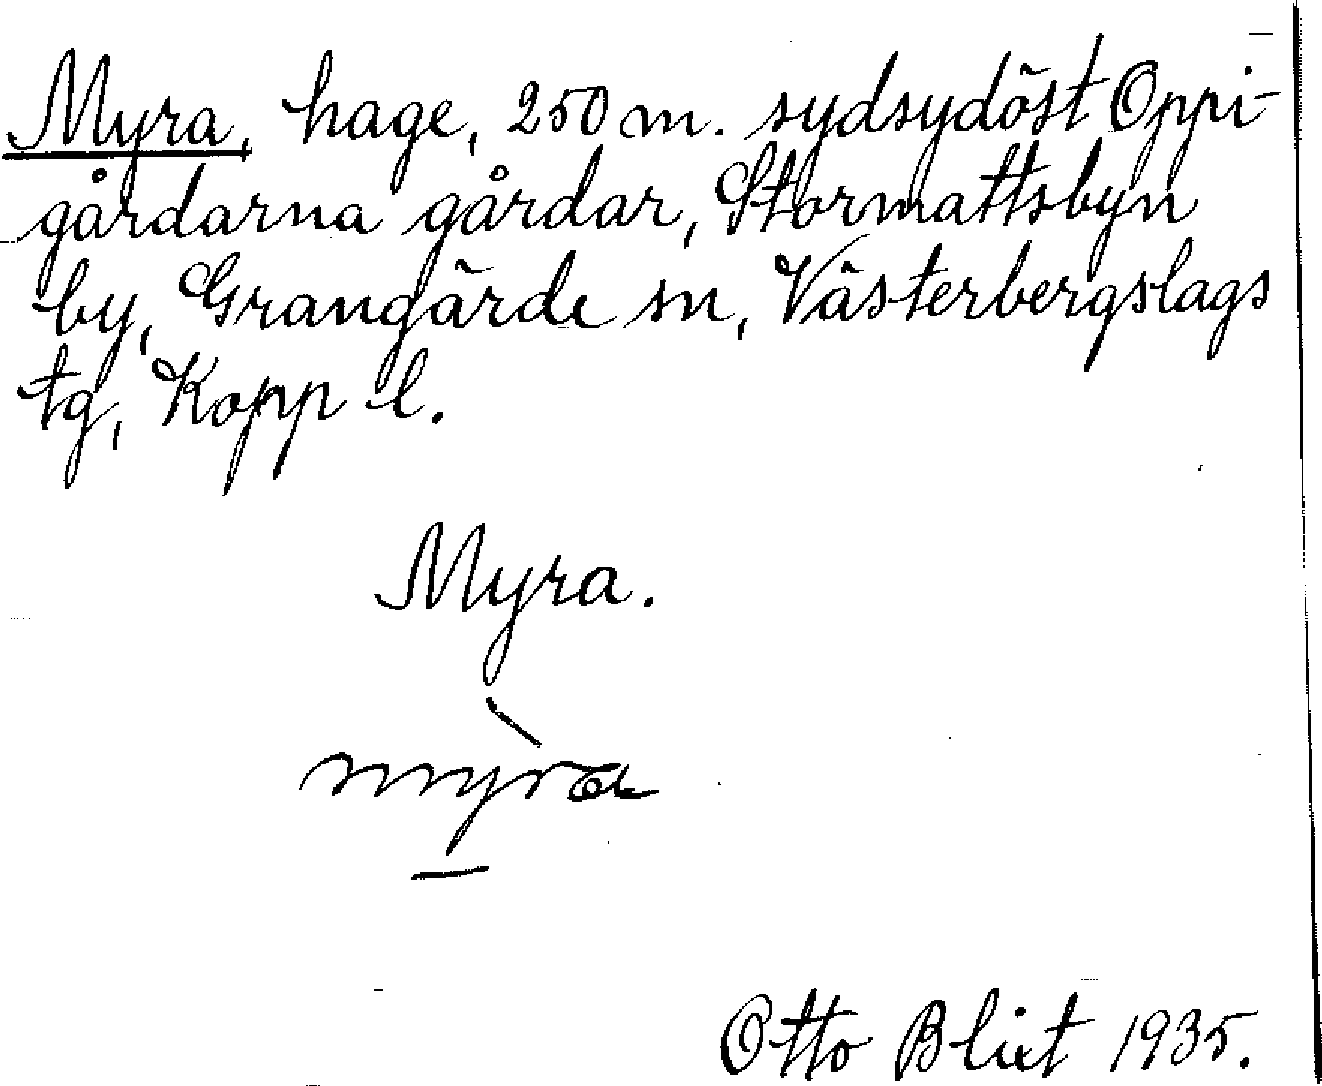 Myra, hage, 250 m. sydsydöst Oppi-
gårdarna gårdar, Stormattsbyn
by, Grangärde sn, Västerbergslags
tg, Kopp l.
Myra.
mỳra
Otto Blixt 1935.